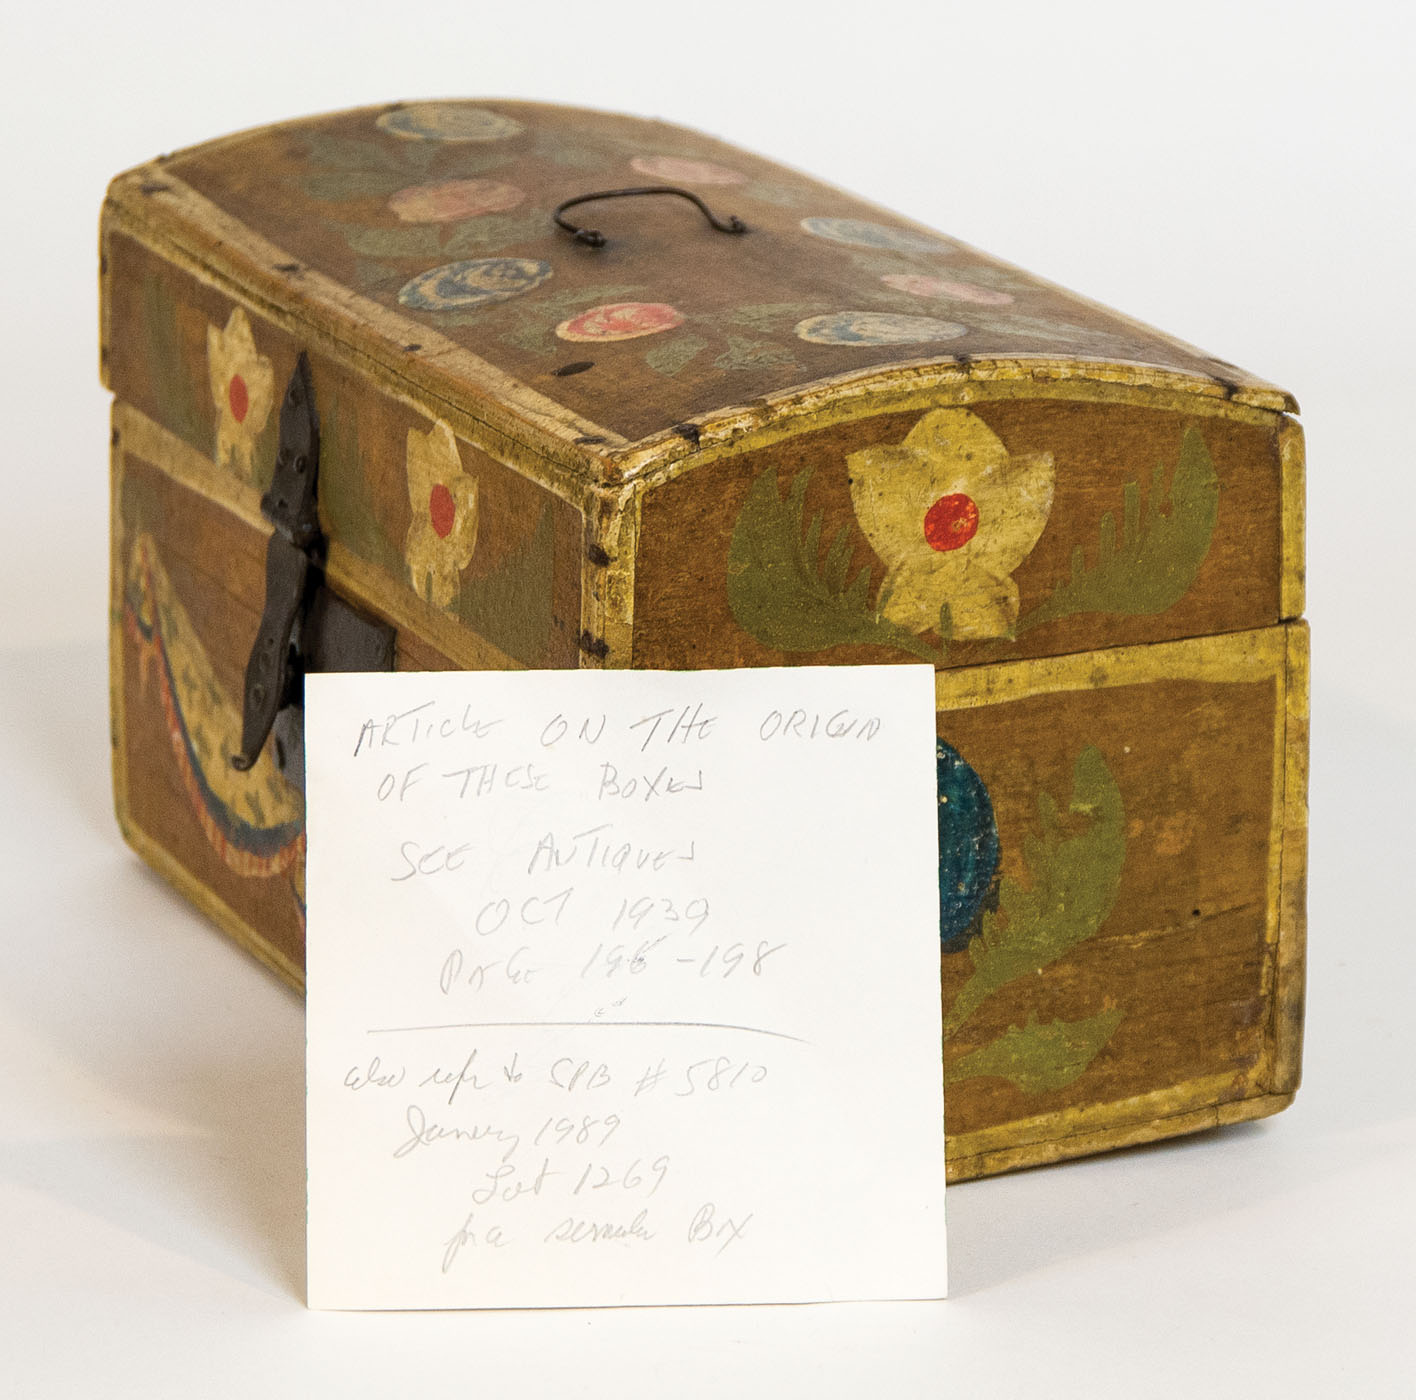 ARTICLE ON THE ORIGIN
OF THESE BOXES
SEE ANTIQUES
OCT 1939
PAGE 196-198
also refer to SPB #5810
January 1989
Lot 1269
for a similar Box